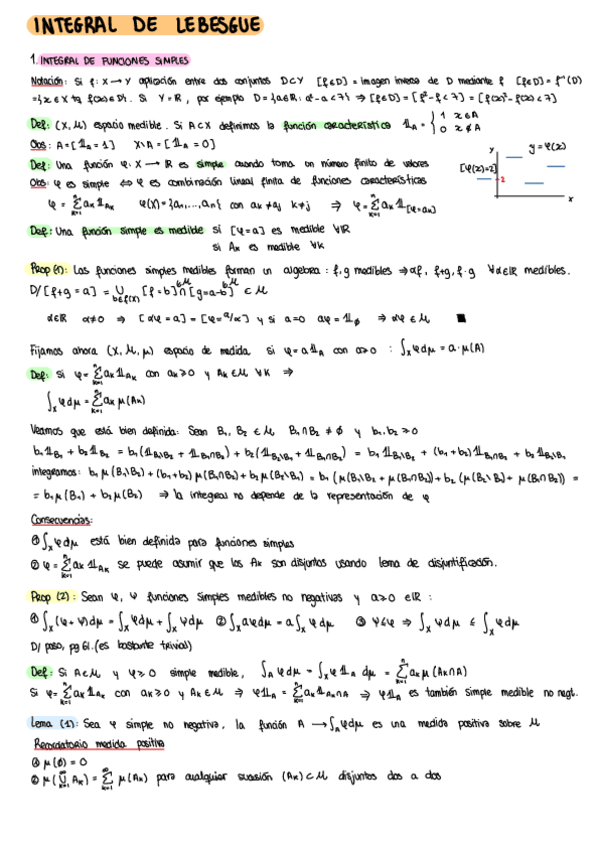 INTEGRAL DE LEBESGUE
1. INTEGRAL DE FUNCIONES SIMPLES
Notación: Si f: X → Y aplicación entre dos conjuntos D⊂Y [f∈D] = imagen inversa de D mediante f [f∈D] = f⁻¹(D)
={x∈X tq f(x)∈D}. Si Y=ℝ, por ejemplo D={a∈ℝ: a²-a<7} ⇒ [f∈D]=[f²-f<7]=[f(x)²-f(x)<7]
Def: (X, M) espacio medible. Si A⊂X definimos la función característica 𝟙_A = { 1 x∈A
0 x∉A
Obs: A=[𝟙_A=1] X\A=[𝟙_A=0]
Def: Una función φ: X → ℝ es simple cuando toma un número finito de valores
Obs: φ es simple ⇔ φ es combinación lineal finita de funciones características
φ = Σ_{k=1}^n a_k 𝟙_{A_k} φ(X)={a₁,...,a_n} con a_k≠a_j k≠j ⇒ φ=Σ_{k=1}^n a_k 𝟙_{[φ=a_k]}
y y=φ(x)
[φ(x)=2] 2
x
Def: Una función simple es medible si [φ=a] es medible ∀ℝ
si A_k es medible ∀k
Prop (1): Las funciones simples medibles forman un algebra: f,g medibles ⇒ αf, f+g, f·g ∀α∈ℝ medibles.
D/ [f+g=a] = ∪_{b∈f(X)} [f=b]^{∈M} ∩ [g=a-b]^{∈M} ∈ M
α∈ℝ α≠0 ⇒ [αφ=a]=[φ=a/α] y si a=0 aφ=𝟙_∅ ⇒ αφ∈M ■
Fijamos ahora (X, M, μ) espacio de medida si φ=a𝟙_A con a>0 : ∫_X φdμ = a·μ(A)
Def: Si φ=Σ_{k=1}^n a_k 𝟙_{A_k} con a_k≥0 y A_k∈M ∀k ⇒
∫_X φdμ = Σ_{k=1}^n a_k μ(A_k)
Veamos que está bien definida: Sean B₁, B₂ ∈ M, B₁∩B₂≠∅ y b₁,b₂≥0
b₁𝟙_{B₁} + b₂𝟙_{B₂} = b₁(𝟙_{B₁\B₂} + 𝟙_{B₁∩B₂}) + b₂(𝟙_{B₂\B₁} + 𝟙_{B₁∩B₂}) = b₁𝟙_{B₁\B₂} + (b₁+b₂)𝟙_{B₁∩B₂} + b₂𝟙_{B₂\B₁}
integramos: b₁μ(B₁\B₂) + (b₁+b₂)μ(B₁∩B₂) + b₂μ(B₂\B₁) = b₁(μ(B₁\B₂ + μ(B₁∩B₂)) + b₂(μ(B₂\B₁) + μ(B₁∩B₂)) =
= b₁μ(B₁) + b₂μ(B₂) ⇒ la integral no depende de la representación de φ
Consecuencias:
① ∫_X φdμ está bien definida para funciones simples
② φ=Σ_{k=1}^n a_k 𝟙_{A_k} se puede asumir que los A_k son disjuntos usando lema de disjuntificación.
Prop (2): Sean φ, ψ funciones simples medibles no negativas y a≥0 ∈ℝ:
① ∫_X (φ+ψ)dμ = ∫_X φdμ + ∫_X ψdμ ② ∫_X aφdμ = a∫_X φdμ ③ ψ≤φ ⇒ ∫_X ψdμ ≤ ∫_X φdμ
D/ paso, pg 61. (es bastante trivial)
Def: Si A∈M y φ≥0 simple medible, ∫_A φdμ = ∫_X φ𝟙_A dμ = Σ_{k=1}^n a_k μ(A_k∩A)
Si φ=Σ_{k=1}^n a_k 𝟙_{A_k} con a_k≥0 y A_k∈M ⇒ φ𝟙_A = Σ_{k=1}^n a_k 𝟙_{A_k∩A} ⇒ φ𝟙_A es también simple medible no negt.
Lema (1): Sea φ simple no negativa, la función A → ∫_A φdμ es una medida positiva sobre M
Recordatorio medida positiva
① μ(∅)=0
② μ(∪_{k=1}^∞ A_k) = Σ_{k=1}^∞ μ(A_k) para cualquier sucesión (A_k)⊂M disjuntos dos a dos